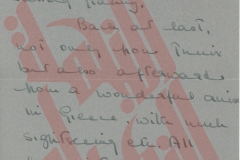 Back at last,
not only from Tunis
but also afterwards
from a wonderful
in Greece, with much
sightseeing etc. All